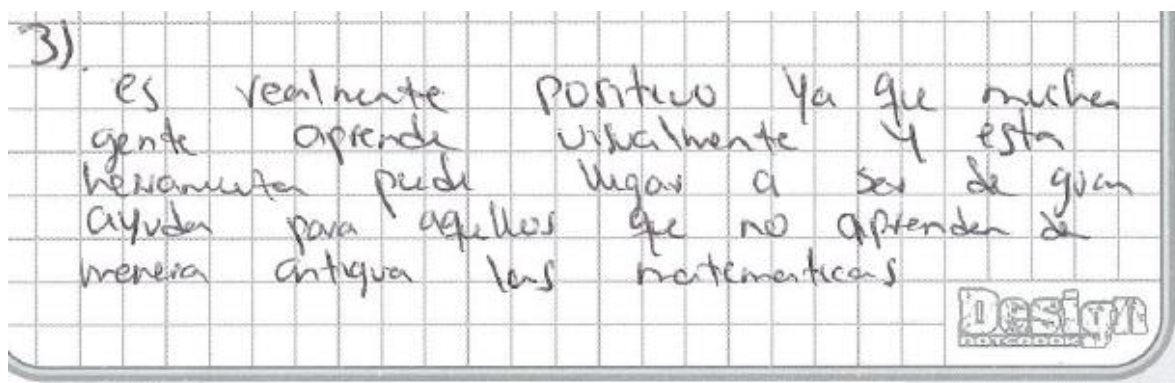 3)
es realmente positivo ya que mucha
gente aprende visualmente y esta
herramienta puede llegar a ser de gran
ayuda para aquellos que no aprenden de
manera antigua las matematicas
Design
NOTEBOOK